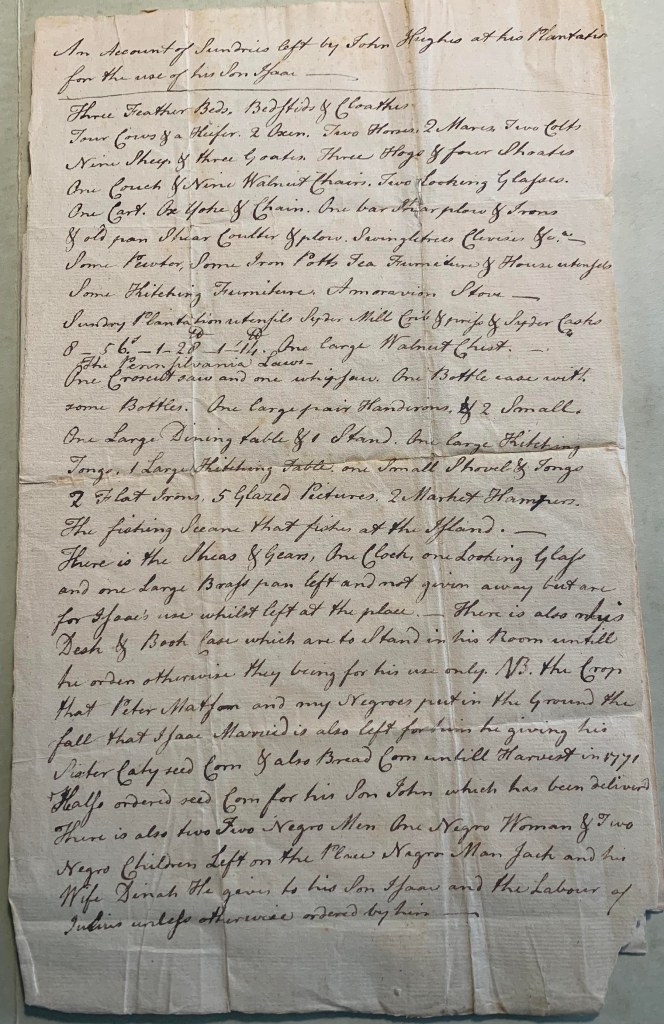 An Account of Sundries left by John Hughes at his Plantatio
for the use of his Son Isaac
Three Feather Beds. Bedstids & Cloathes
Four Cows & a Heifer. 2 Oxen. Two Horses. 2 Mares. Two Colts
Nine Sheep & three Goates. Three Hogs & four Shoates
One Couch & Nine Walnut Chairs. Two Looking Glasses.
One Cart. Ox Yoke & Chain. One bar Shear plow & Irons
& old pan Shear Coulter & plow. Swingletrees Clevises &c.a
Some Pewter, Some Iron Potts Tea Furniture & House utensils
Some Kitching Furniture. A moravian Stove
Sundry Plantation utensils Syder Mill & press & Syder Casks
8 - 5 - 1 - 28 - 1 - . One large Walnut Chest.
The Pennsilvania Laws
One Croscut saw and one whip saw. One Bottle case with
some Bottles. One large pair Handirons, & 2 Small.
One Large Dining table & 1 Stand. One large Kitching
Tongs. 1 Large Kitching table. one Small Shovel & Tongs
2 Flat Irons. 5 Glazed Pictures. 2 Market Hampers.
The fishing Sceane that fishes at the Island.
There is the & Gears, One Clock, one Looking Glass
and one Large Brass pan left and not given away but are
for Isaac's use whilst left at the place. There is also his
Desk & Book Case which are to Stand in his Room untill
he orders otherwise they being for his use only. NB. the Crop
that Peter Matson and my Negroes put in the Ground the
fall that Isaac Married is also left for him he giving his
Sister Caty seed Corn & also Bread Corn untill Harvest in 1771
ordered seed Corn for his Son John which has been deliverd
There is also two Two Negro Men One Negro Woman & Two
Negro Children Left on the Place Nagro Man Jack and his
Wife Dinah He gives to his Son Isaac and the Labour of
Julius unless otherwise ordered by him